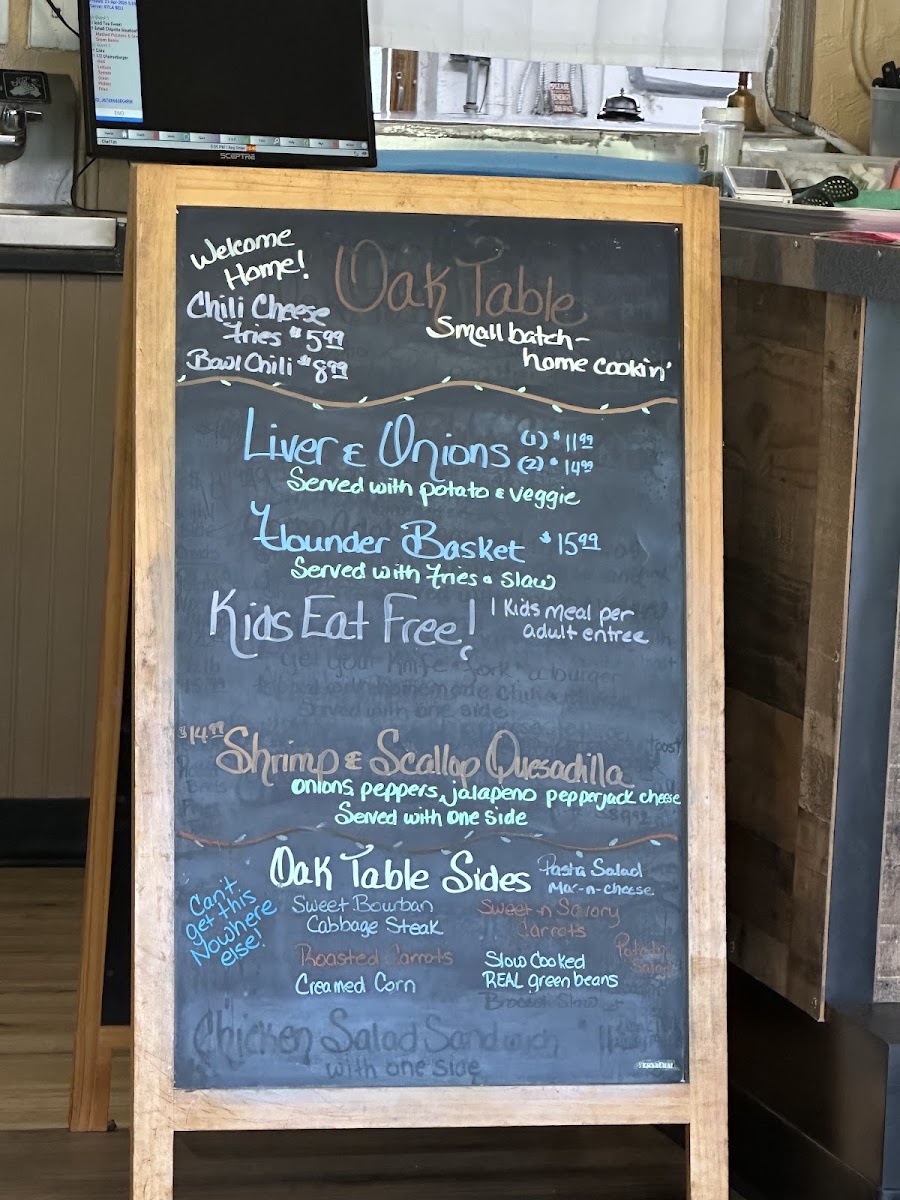 SCEPTRE
Welcome
Home!
Oak Table
Small batch-
home cookin'
Chili Cheese
Fries $5.99
Bowl Chili $8.99
Liver & Onions (1) $11.99
(2) $14.99
Served with potato & veggie
Flounder Basket $15.99
Served with Fries & slaw
Kids Eat Free! 1 Kids meal per
adult entree
Get your knife & fork
Served with one side
$14.99
Shrimp & Scallop Quesadilla
onions, peppers, jalapeno pepperjack cheese
Served with one side
Oak Table Sides
Pasta Salad
Mac-n-cheese
Can't
get this
Nowhere
else!
Sweet Bourban
Cabbage Steak
Sweet-n Savory
Carrots
Roasted Carrots
Potato
Salad
Creamed Corn
Slow Cooked
REAL green beans
Broccoli Slaw
Chicken Salad Sandwich
with one side